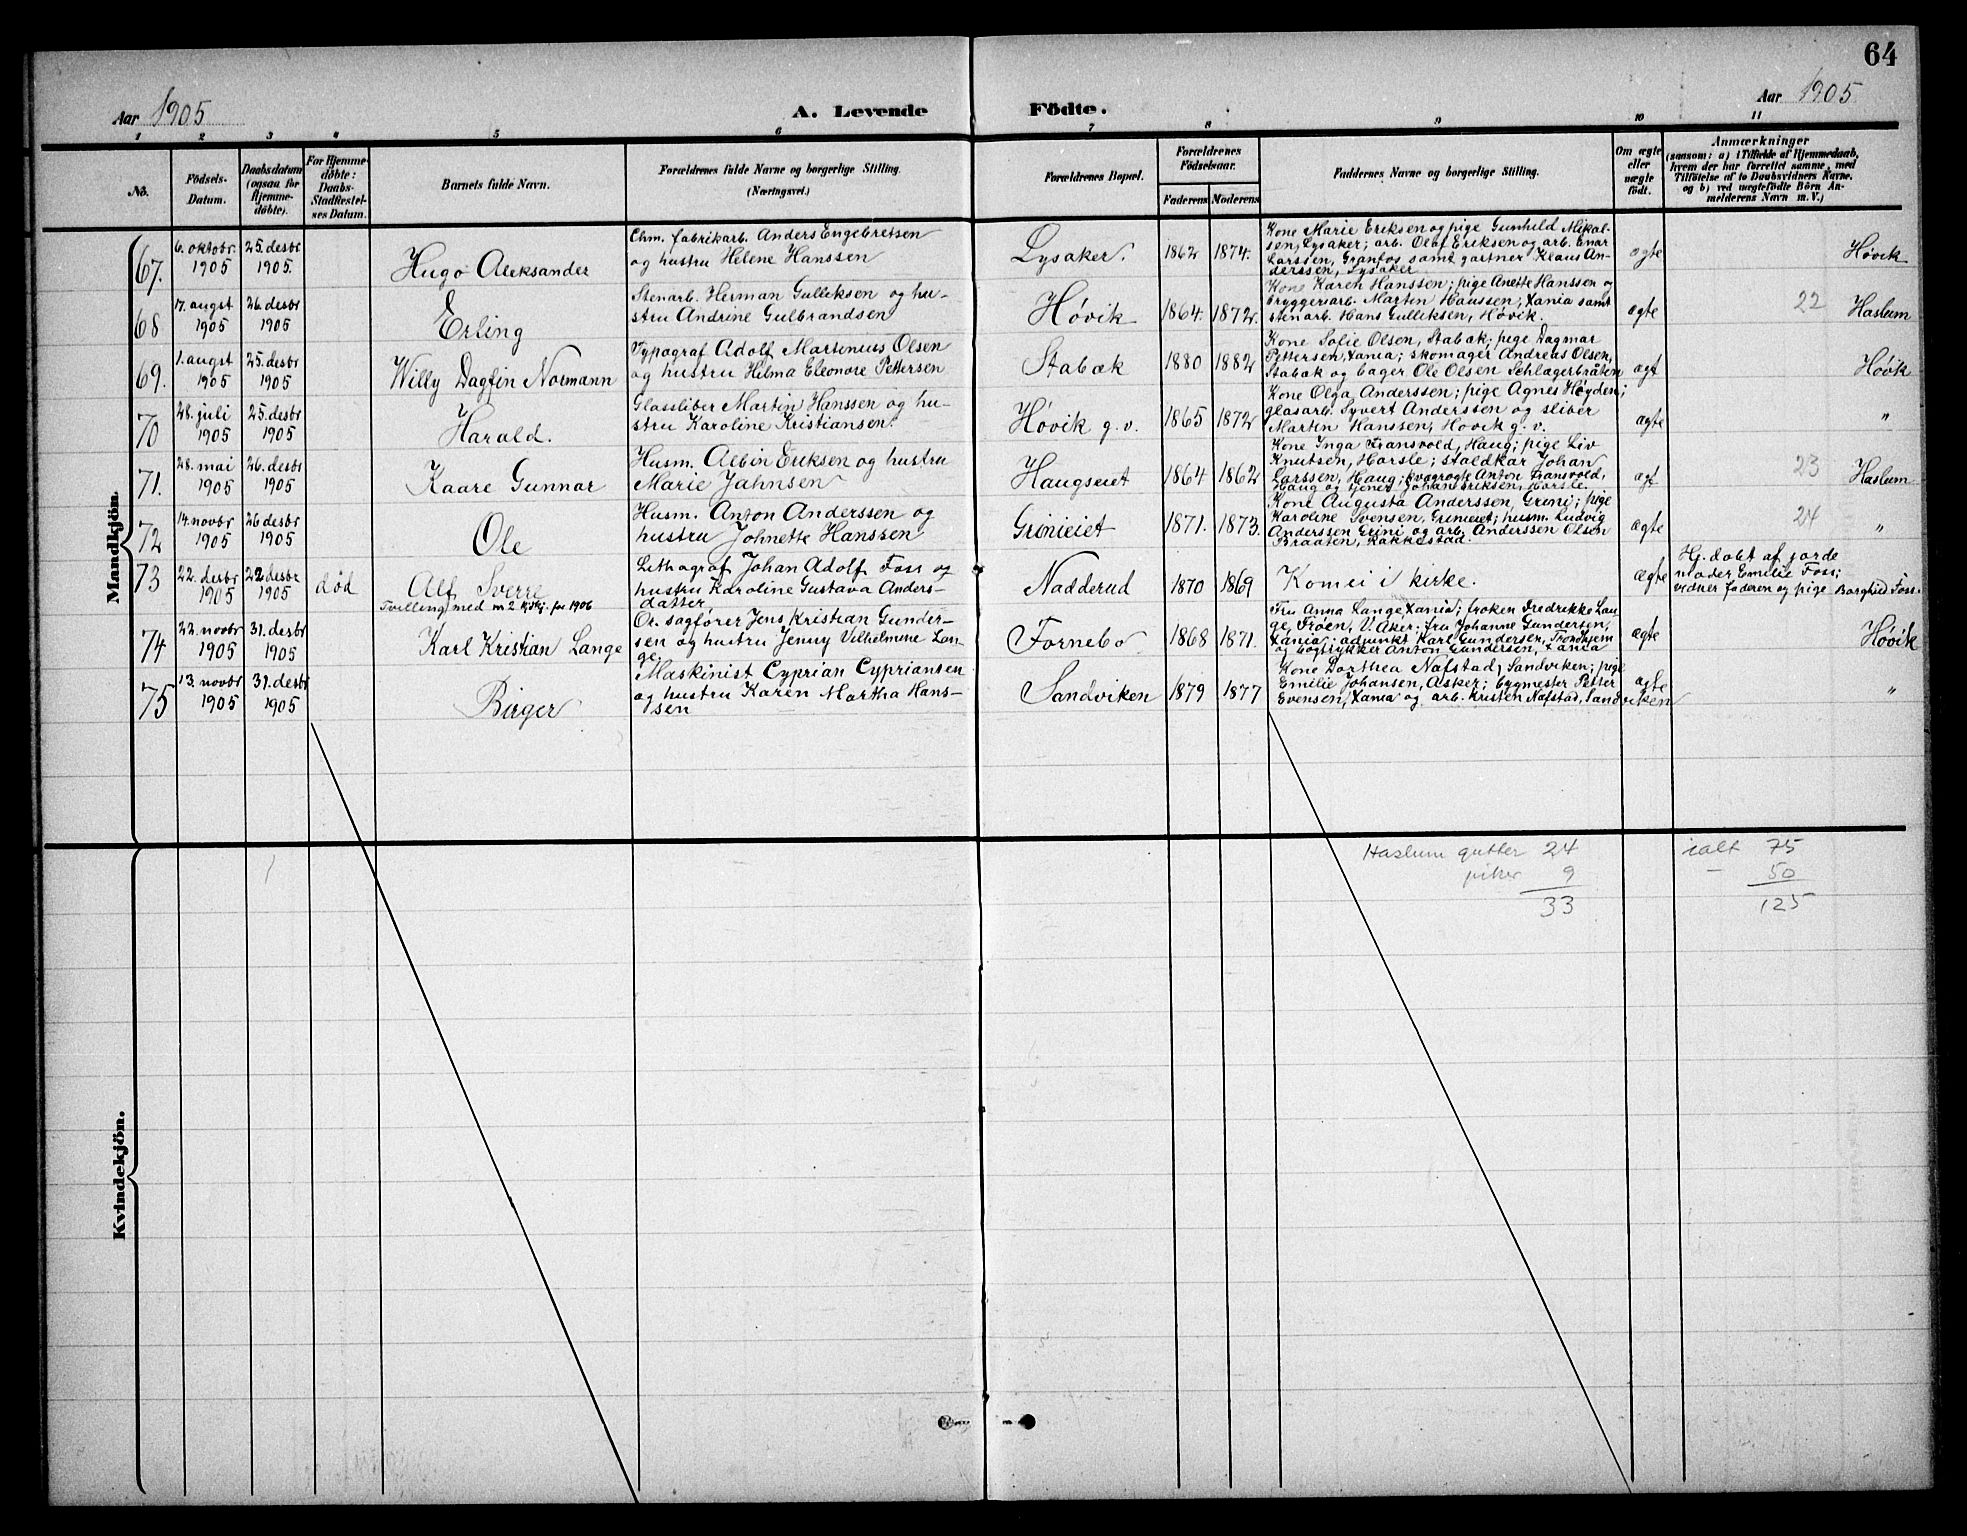 64
Aar 1905
A. Levende
Födte.
Aar 1905
1 2 3 4 5 6 7 8 9 10 11
No.
Födsels-
Datum.
Daabsdatum
(ogsaa for
Hjemme-
döbte).
For Hjemme-
döbte:
Daabs-
Stadfæstel-
ses Datum.
Barnets fulde Navn.
Forældrenes fulde Navne og borgerlige Stilling.
(Næringsvei.)
Forældrenes Bopæl.
Forældrenes
Födselsaar.
Faderens
Moderens
Faddernes Navne og borgerlige Stilling.
Om ægte
eller
uægte
født.
Anmærkninger
(saasom: a) i Tilfælde af Hjemmedaab,
hvem der har forrettet samme, med
Tilföielse af to Daabsvidners Navne,
og b) ved uægtefödte Börn An-
melderens Navn m. V.)
Mandkjön.
67.
6. oktobr.
1905
25. desbr
1905.
Hugo Aleksander
Chm. fabrikarb. Anders Engebretsen
og hustru Helene Hanssen
Lysaker.
1862
1874.
Kone Marie Eriksen og pige Gunhild Mikal-
sen, Lysaker; arb. Olaf Eriksen og arb. Enar
Larssen, Granfos samt gartner Klaus An-
derssen, Lysaker
ægte
Høvik
68
17. augst
1905
26. desbr
1905
Erling
Stenarb. Herman Gulleksen og hu-
stru Andrine Gulbrandsen
Høvik
1864.
1872.
Kone Karen Hanssen; pige Anette Hanssen og
bryggeriarb. Martin Hanssen, Xania samt
stenarb. Hans Gulleksen, Høvik.
ægte
22
Haslum
69.
1. augst
1905
25. desbr
1905
Willy Dagfin Normann
Typograf Adolf Martinius Olsen
og hustru Hilma Eleonore Pettersen
Stabæk
1880
1882
Kone Sofie Olsen, Stabæk; pige Dagmar
Pettersen, Xania; skomager Andreas Olsen,
Stabæk og bager Ole Olsen Schlagerbråten
ægt
Høvik
70
28. juli
1905
25. desbr
1905
Harald.
Glassliber Martin Hanssen og hu-
stru Karoline Kristiansen.
Høvik g. v.
1865
1872
Kone Olga Anderssen; pige Agnes Høyden;
glasarb. Syvert Anderssen og sliber
Martin Hanssen, Høvik g. v.
ægte
"
71.
28. mai
1905
26. desbr
1905
Kaare Gunnar
Husm. Albin Eriksen og hustru
Marie Jahnsen
Haugseiet
1864
1862
Kone Inga Transvold, Haug; pige Liv
Knutsen, Horsle; staldkar Johan
Larssen, Haug; Anton Transvold,
Haug og tjener Johan Eriksen, Horsle.
ægt
23
Haslum
72
14. novbr
1905
26 desbr
1905
Ole
Husm. Anton Anderssen og
hustru Johnette Hanssen
Grinieiet
1871.
1873.
Kone Augusta Anderssen, Grini; pige
Karoline Svensen, Grinieiet; husm. Ludvig
Anderssen Grini og arb. Anderssen Olsen
Braaten, Kakkestad.
ægte
24
"
73
22. desbr
1905
22 desbr
1905
død
Alf Sverre
Tvilling med no 2 kvkj. for 1906
Lithograf Johan Adolf Foss og
hustru Karoline Gustava Anders-
datter,
Nadderud
1870
1869
Kom ei i kirke.
ægte
Hj. døbt af jorde
moder Emilie Foss;
vidner faderen og pige Borghild Foss.
74
22. novbr
1905
31. desbr
1905
Karl Kristian Lange
Or. sagfører Jens Kristian Gunder-
sen og hustru Jenny Vilhelmine Lan-
ge.
Fornebo
1868
1871.
Fru Anna Lange, Xania; frøken Fredrikke Lan-
ge, Frøen, V. Aker; fru Johanne Gundersen,
Xania; adjunkt Karl Gundersen, Trondhjem
og bogtrykker Anton Gundersen, Xania
ægte
Høvik
75
13. novbr
1905
31. desbr
1905
Birger
Maskinist Cyprian Cypriansen
og hustru Karen Martha Hans-
sen
Sandviken
1879
1877
Kone Dorthea Nafstad, Sandviken; pige
Emilie Johansen, Asker; bygmester Petter
Evensen, Xania og arb. Kristen Nafstad, Sandviken
ægte
"
Kvindekjön.
Haslum gutter 24
piker 9
33
ialt 75
– 50
125